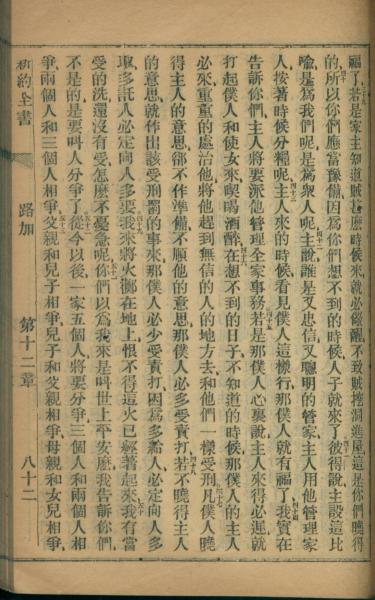 福了若是家主知道賊甚麼時候來就必儆醒不致賊挖洞進屋這是你們曉得
的所以你們應當豫備因為你們想不到的時候人子就來了彼得說主設這比
喻是為我們呢是為衆人呢主說誰是又忠信又聰明的管家主人用他管理家
人按著時候分糧呢主人來的時候看見僕人這樣行那僕人就有福了我實在
告訴你們主人將要派他管理全家事務若是那僕人心裏說主人來得必遲就
打起僕人和使女來喫喝酒醉在想不到的日子不知道的時候那僕人的主人
必來重重的處治他將他趕到無信的人的地方去和他們一樣受刑凡僕人曉
得主人的意思卻不作準備不順他的意思那僕人必多受責打若不曉得主人
的意思就作出該受刑罰的事來那僕人必少受責打因為多給人必定向人多
取多託人必定向人多要我來將火擲在地上恨不得這火已經著起來我有當
受的洗還沒有受怎麼不憂急呢你們以為我來是叫世上平安麼我告訴你們
不是的是要叫人分爭了從今以後一家五個人將要分爭三個人和兩個人相
爭兩個人和三個人相爭父親和兒子相爭兒子和父親相爭母親和女兒相爭
新約全書 路加 第十二章 八十二